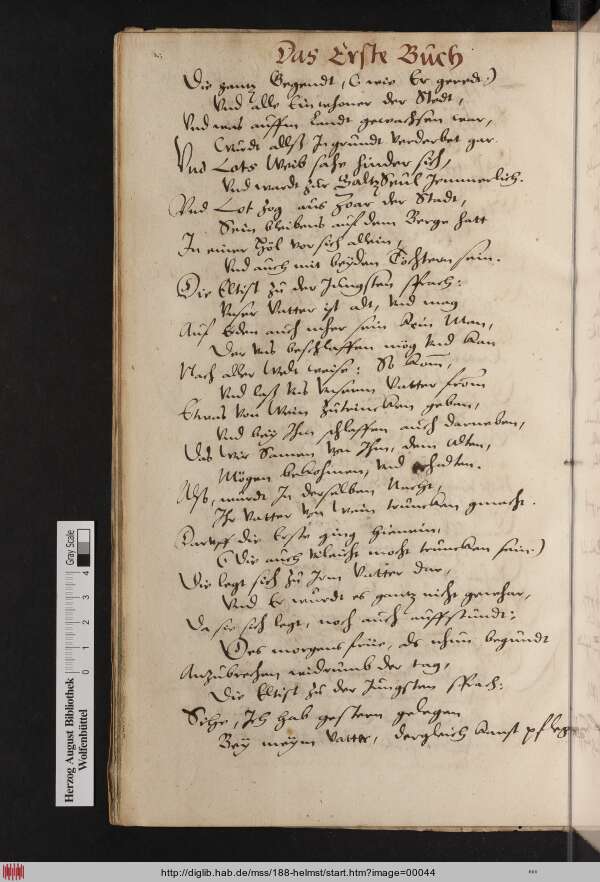 Das Erste Buch
Die gantz Gegendt, (: wie Er geredt:)
Vnd alle Einwhoner der Stedt,
Vnd was auffm Landt gewachsen war,
Wurdt alls Ingrundt verderbet gar.
Vnd Lots Weib sahe hinder sich,
Vnd wardt zur SaltzSeul Jemmerlich.
Vnd Lot zog aus Zoar der Stadt,
Sein bleibens auf dem Berge hatt
In einer Höl vor sich allein,
Vnd auch mit beyden Töchtern sein.
Die Eltist zu der Jüngsten sprach:
Vnser Vatter ist alt, vnd mag
Auf Erden auch nher sein kein Man,
Der vns beschlaffen mög vnd kan
Nach aller Welt weise: So kom,
Vnd laß vns vnserm Vatter from
Etwas von Wein zutrincken geben,
Vnd bey Ihm schlaffen auch darneben,
Das wir Samen von Ihm, dem Alten,
Mögen bekohmen, vnd erhalten.
Also, wurdt In derselben Nacht,
Ihr Vatter von Wein truncken gmacht.
Darauf die Erste ging hinein,
(: Die auch vileicht mocht truncken sein:)
Die legt sich zu Irm Vatter dar,
Vnd Er wurdt es gantz nicht gewhar,
Da sie sich legt, noch auch auffstundt:
Des morgens früe, als nhun begundt
Anzubrechen widrumb der tag,
Die Eltist zu der Jüngsten sprach:
Sihe, Ich hab gestern gelegen
Bey meym Vatter, dergleich kanst pfleg
Herzog August Bibliothek
Wolfenbüttel
0 1 2 3 4 Gray Scale
http://diglib.hab.de/mss/188-helmst/start.htm?image=00044